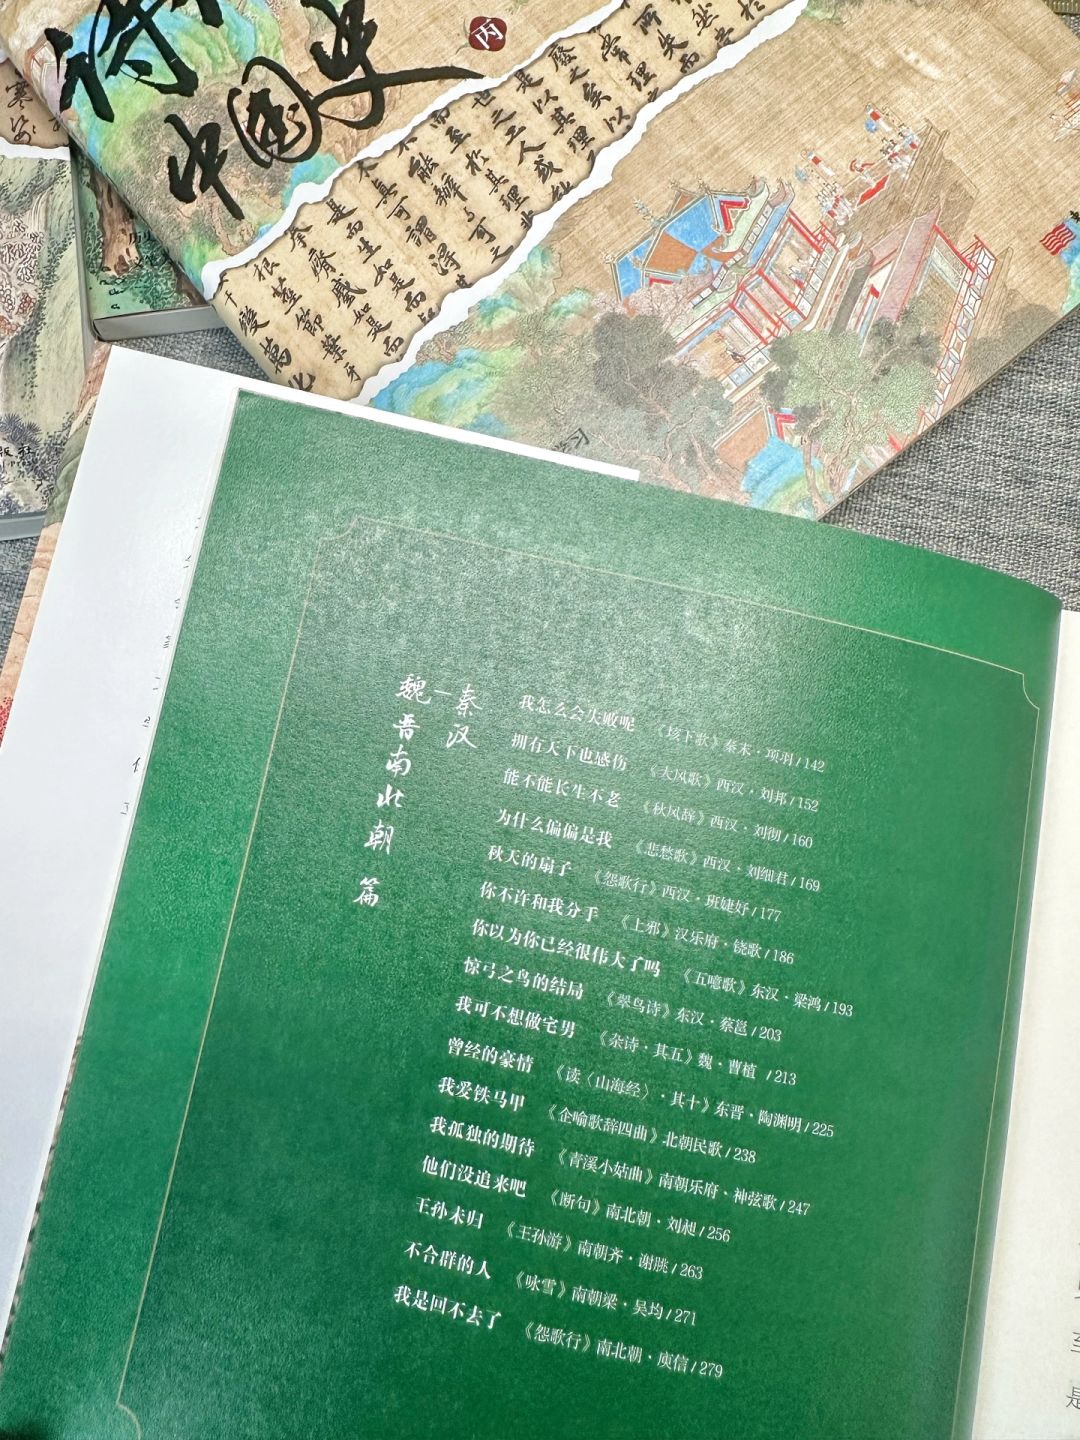 诗
中国史
丙
世之工人或
而至於其理
不能辨
是而生如是而
本齊戲如是而
根莖節葉牙
千變萬化
秦汉—
魏晋南北朝 篇
我怎么会失败呢 《垓下歌》秦末·项羽/142
拥有天下也感伤 《大风歌》西汉·刘邦/152
能不能长生不老 《秋风辞》西汉·刘彻/160
为什么偏偏是我 《悲愁歌》西汉·刘细君/169
秋天的扇子 《怨歌行》西汉·班婕妤/177
你不许和我分手 《上邪》汉乐府·铙歌/186
你以为你已经很伟大了吗 《五噫歌》东汉·梁鸿/193
惊弓之鸟的结局 《翠鸟诗》东汉·蔡邕/203
我可不想做宅男 《杂诗·其五》魏·曹植 /213
曾经的豪情 《读〈山海经〉·其十》东晋·陶渊明/225
我爱铁马甲 《企喻歌辞四曲》北朝民歌/238
我孤独的期待 《青溪小姑曲》南朝乐府·神弦歌/247
他们没追来吧 《断句》南北朝·刘昶/256
王孙未归 《王孙游》南朝齐·谢朓/263
不合群的人 《咏雪》南朝梁·吴均/271
我是回不去了 《怨歌行》南北朝·庾信/279